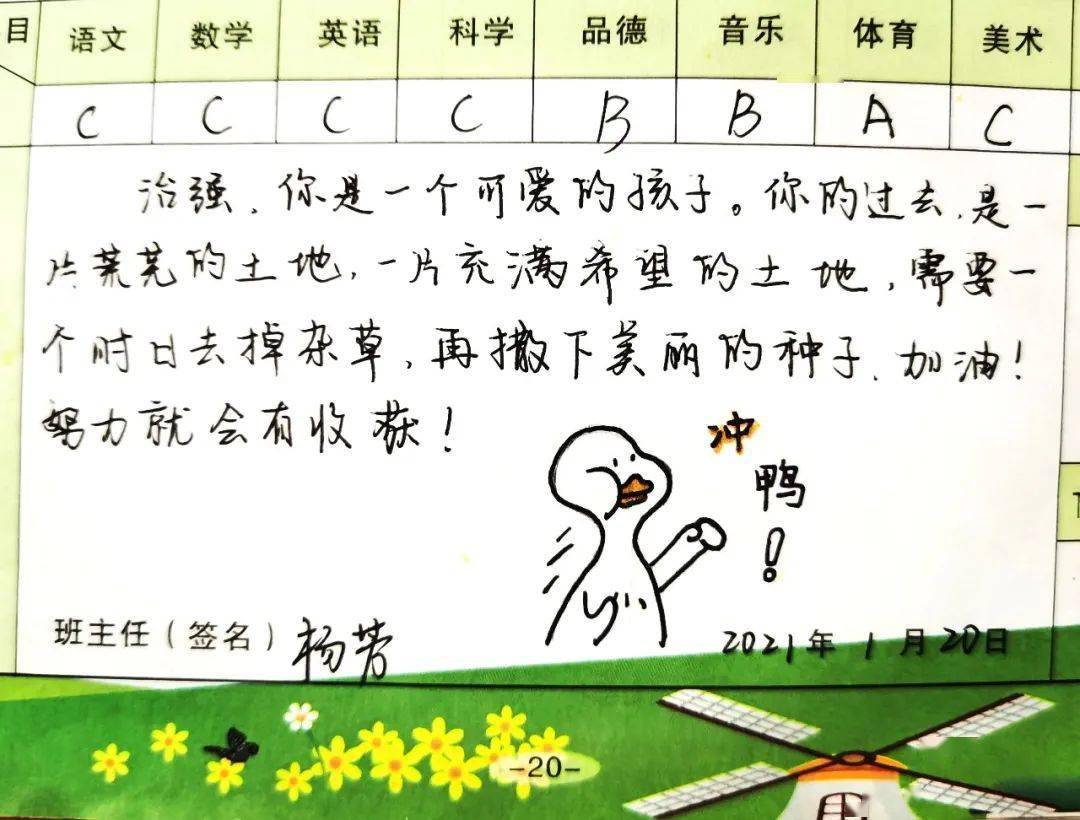 目 语文 数学 英语 科学 品德 音乐 体育 美术
C C C C B B A C
治强，你是一个可爱的孩子。你的过去，是一
片荒芜的土地，一片充满希望的土地，需要一
个时日去掉杂草，再撒下美丽的种子，加油！
努力就会有收获！
冲
鸭
！
班主任（签名）杨芳
2021年1月20日
-20-